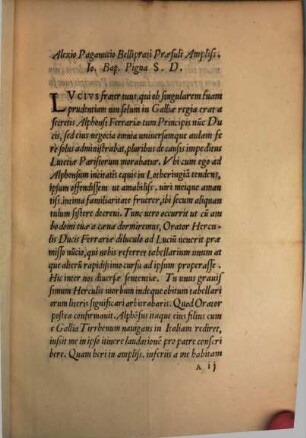 Alexio Paganucio Belliprati Præsuli Ampliss.
Io. Bap. Pigna S. D.
LVCIVS frater tuus, qui ob singularem suam
prudentiam non solum in Gallia regia erat a
secretis Alphonsi Ferrariæ tum Principis nūc Du
cis, sed eius negocia omnia universamque aulam fe
re solus administrabat, pluribus de causis impeditus
Lutetiæ Parisiorum morabatur. Vbi cum ego ad
Alphonsum incitatis equis in Lotheringiā tendens,
ipsum offendissem ut amabiliss. uiri meique aman
tiss. intima familiaritate fruerer, ibi secum aliquan
tulum sistere decreui. Tunc uero occurrit ut cū am
bo domi tua a cæna dormiremus, Orator Hercu
lis Ducis Ferrariæ diluculo ad Luciū uenerit præ
misso nūcio, qui nobis referret tabellarium unum at
que alterū rapidissimo cursu ad ipsum properasse.
Hic inter nos diuersæ sententiæ. Tu unus grauis
simum Herculis morbum indeque obitum tabellari
orum literis significari arbitrabaris. Quod Orator
postea confirmauit. Alphōsus itaque eius filius cum
e Gallia Tirrhenum nauigans in Italiam rediret,
iussit me in ipso itinere laudationē pro patre conscri
bere. Quam heri in ampliss. inferiis a me habitam
A ij